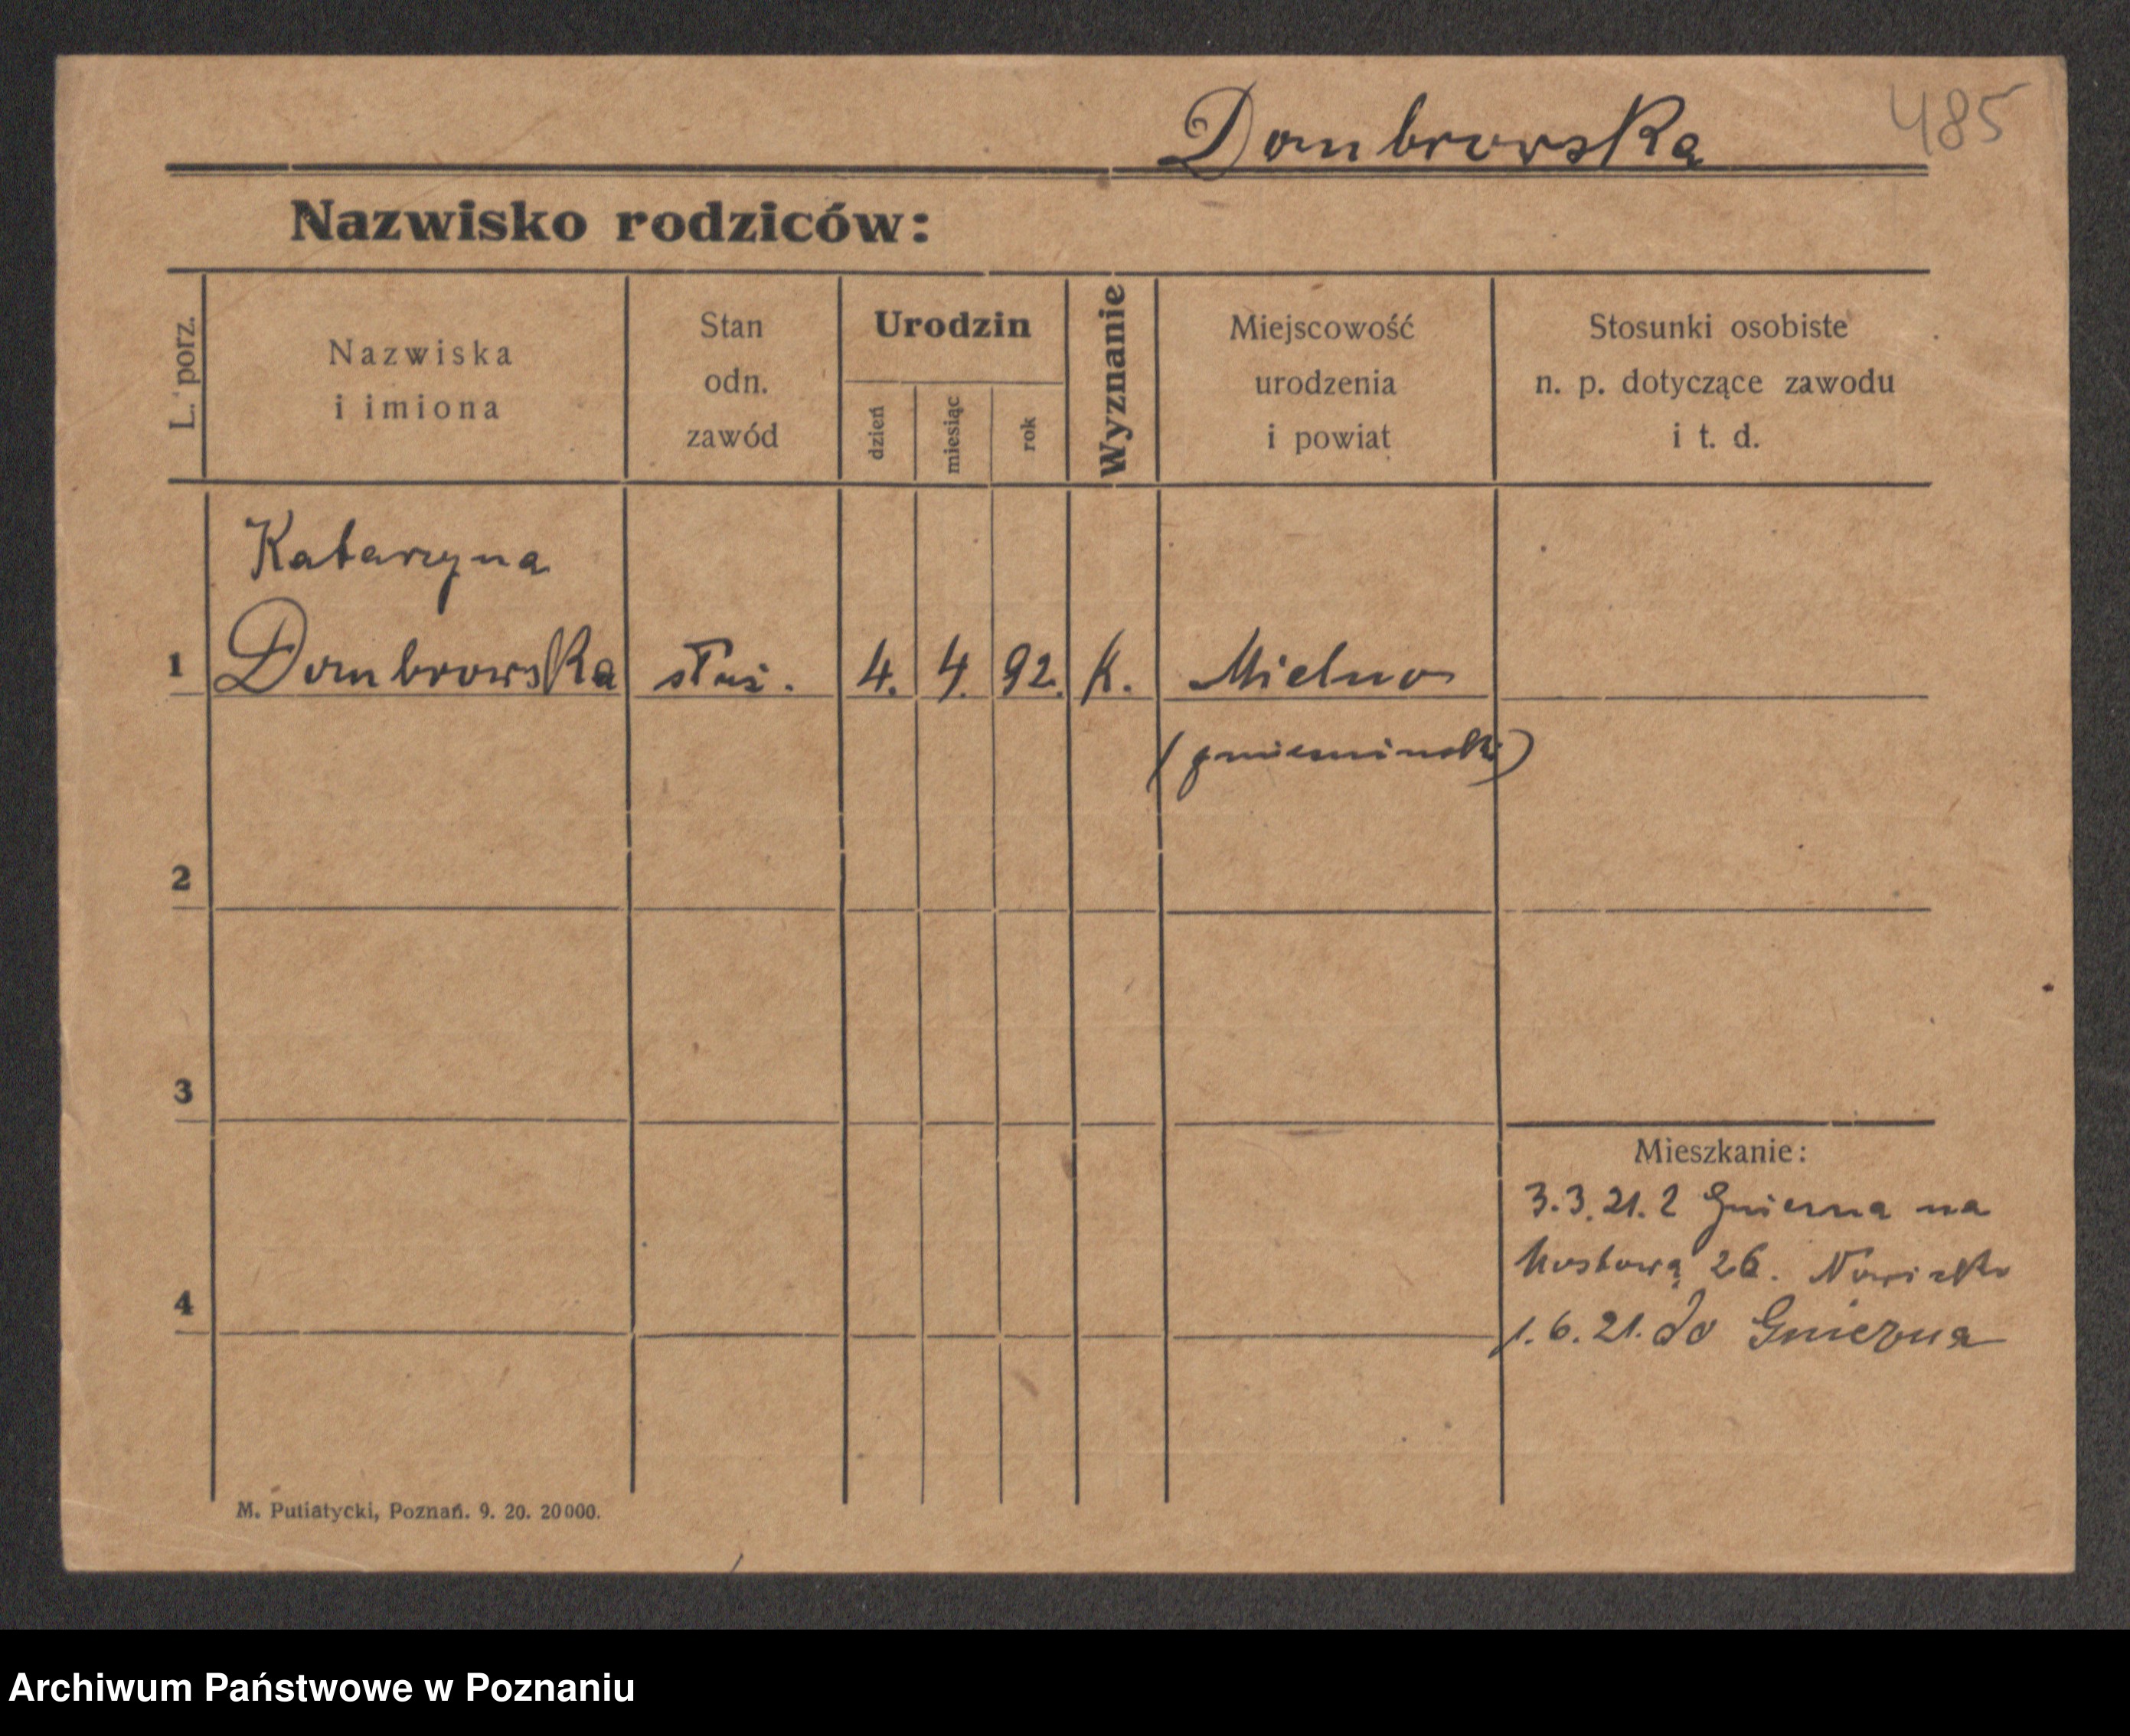 Dombrowska 485
Nazwisko rodziców:
L. porz.
Nazwiska
i imiona
Stan
odn.
zawód
Urodzin
dzień
miesiąc
rok
Wyznanie
Miejscowość
urodzenia
i powiat
Stosunki osobiste
n. p. dotyczące zawodu
i t. d.
Katarzyna
1 Dombrowska służ. 4. 4. 92. K. Mielno
(gnieźnieński)
2
3
Mieszkanie:
3.3.21. z Gniezna na
Mostową 26.
4
1.6.21. do Gniezna
M. Putiatycki, Poznań. 9. 20. 20000.
Archiwum Państwowe w Poznaniu